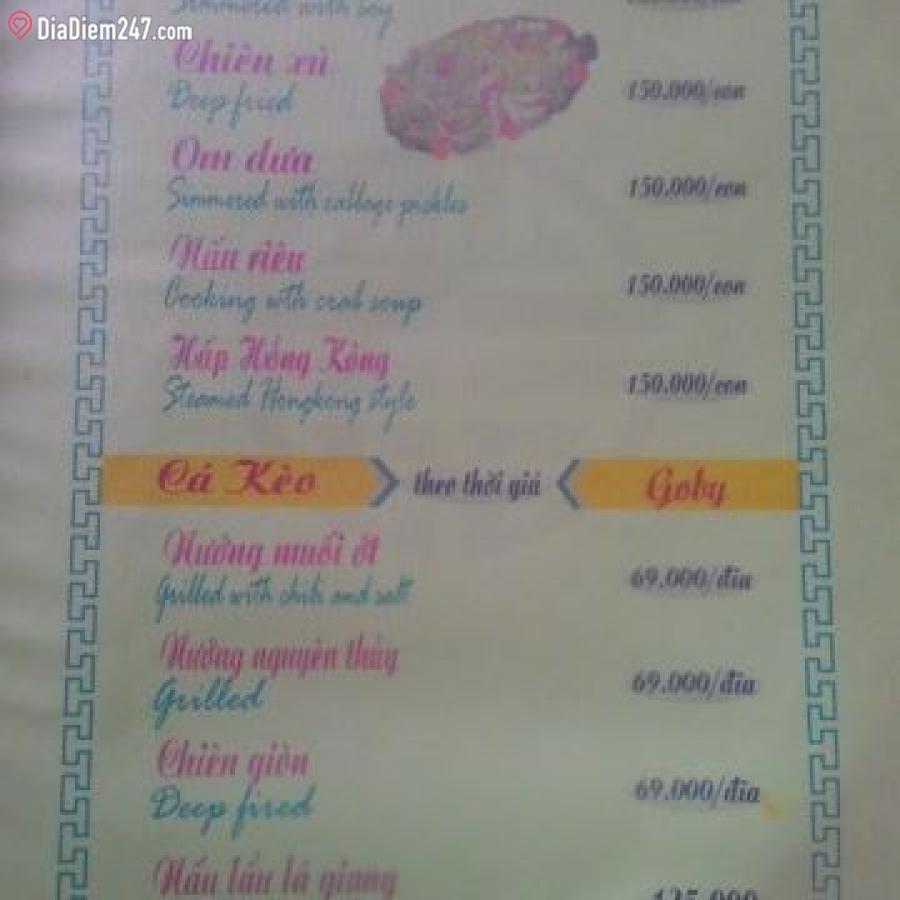 DiaDiem247.com
Simmered with soy
Chiên xù
Deep fried
150.000/con
Om dưa
Simmered with cabbage pickles
150.000/con
Nấu riêu
Cooking wth crab soup
150.000/con
Hấp Hồng Kông
Steamed Hongkong style
150.000/con
Cá Kèo theo thời giá Goby
Nướng muối ớt
Grilled with chili and salt
69.000/đĩa
Nướng nguyên thủy
Grilled
69.000/đĩa
Chiên giòn
Deep fired
69.000/đĩa
Nấu lẩu lá giang
125.000